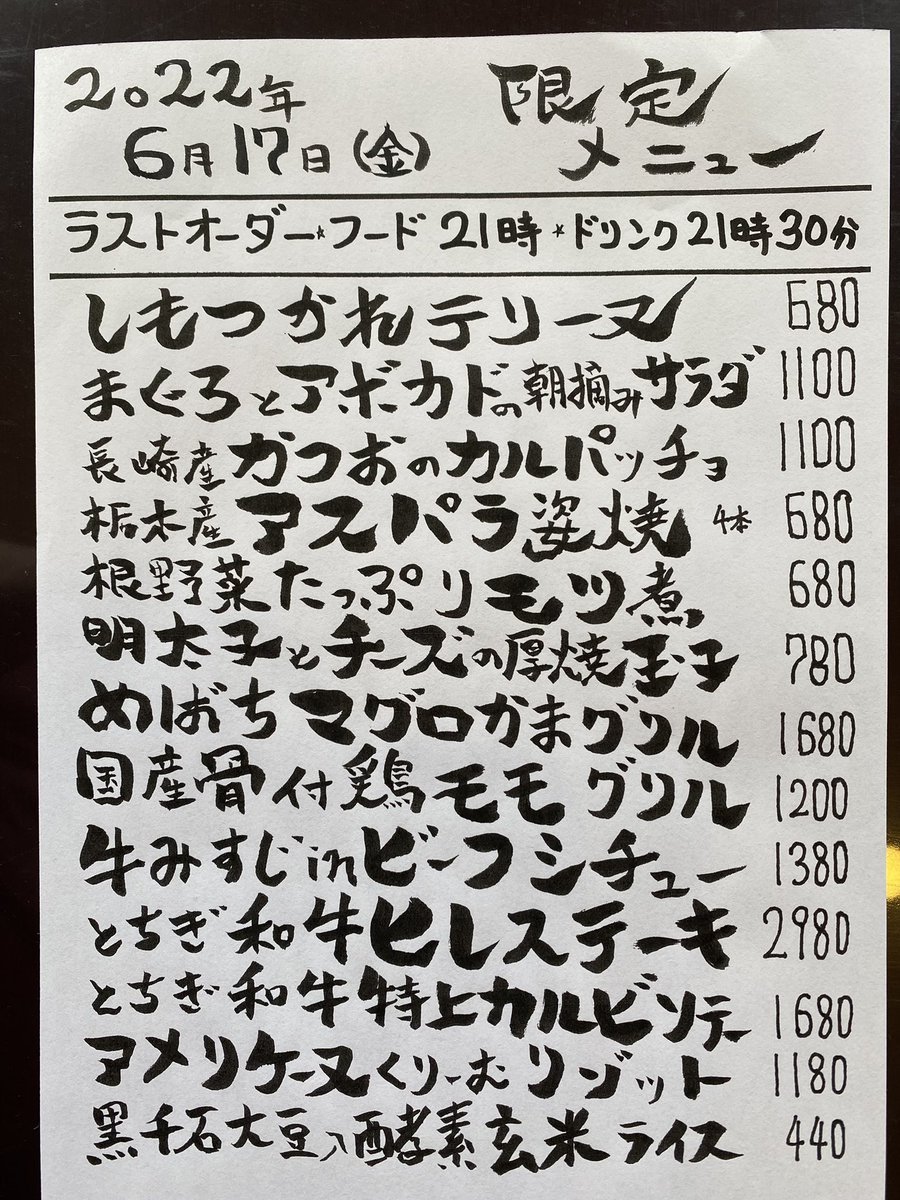 2022年 限定
6月17日(金) メニュー
ラストオーダー*フード 21時*ドリンク21時30分
しもつかれテリーヌ 680
まぐろとアボカドの朝摘みサラダ 1100
長崎産かつおのカルパッチョ 1100
栃木産アスパラ姿焼 4本 680
根野菜たっぷりモツ煮 680
明太子とチーズの厚焼玉子 780
めばちマグロかまグリル 1680
国産骨付鶏モモグリル 1200
牛みすじinビーフシチュー 1380
とちぎ和牛ヒレステーキ 2980
とちぎ和牛特上カルビソテー 1680
アメリケーヌくりーむリゾット 1180
黒千石大豆入酵素玄米ライス 440